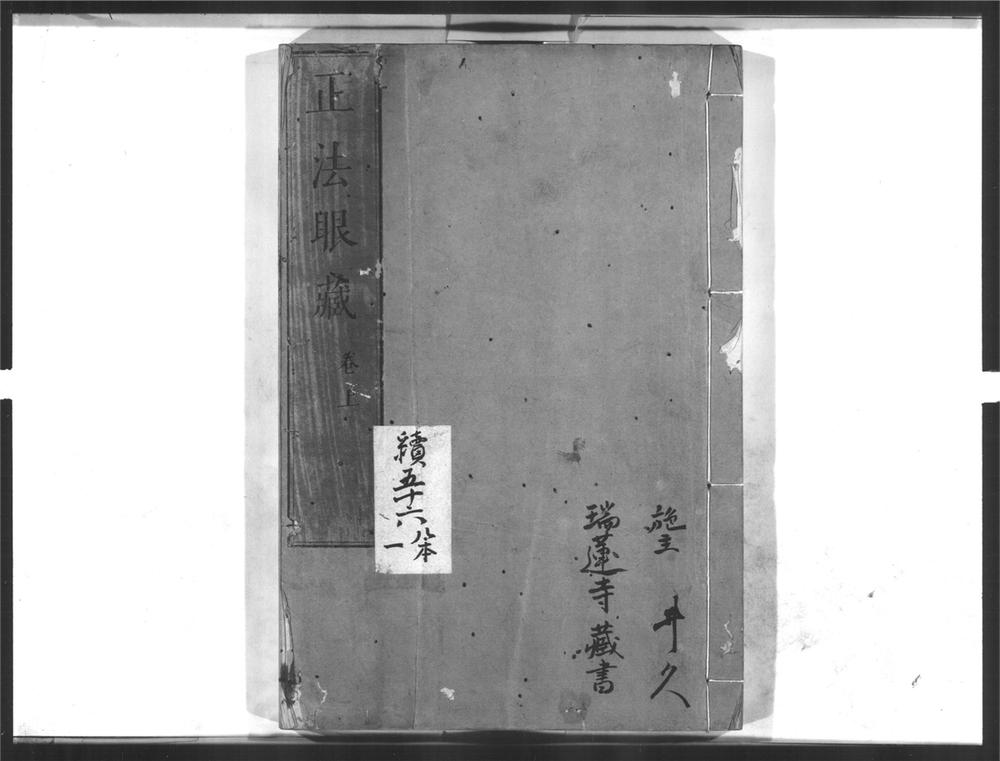 施主 井久
瑞蓮寺藏書
續五十六
八本
一
正法眼藏 卷上